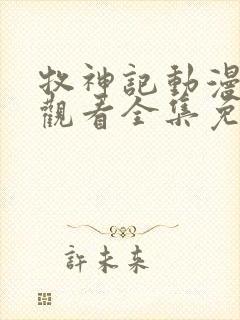 牧神記動漫
觀看全集免
許未來